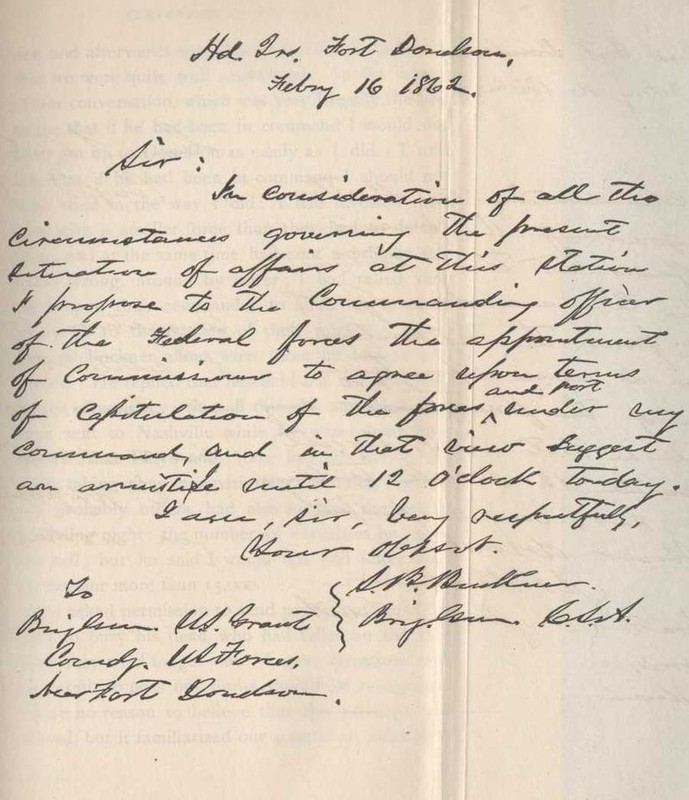 Hd. Qrs. Fort Donelson,
Febry 16 1862.
Sir:
In consideration of all the
circumstances governing the present
situation of affairs at this station
I propose to the Commanding officer
of the Federal forces the appointment
of Commissioners to agree upon terms
and post
of capitulation of the forces ^ under my
command, and in that view suggest
an armistice until 12 o'clock today.
I am, sir, very respectfully,
Your obt. servt.
S. B. Buckner.
Brig. Gen. C.S.A.
To
Brig. Gen. U.S. Grant
Comdg. U.S. Forces,
Near Fort Donelson.